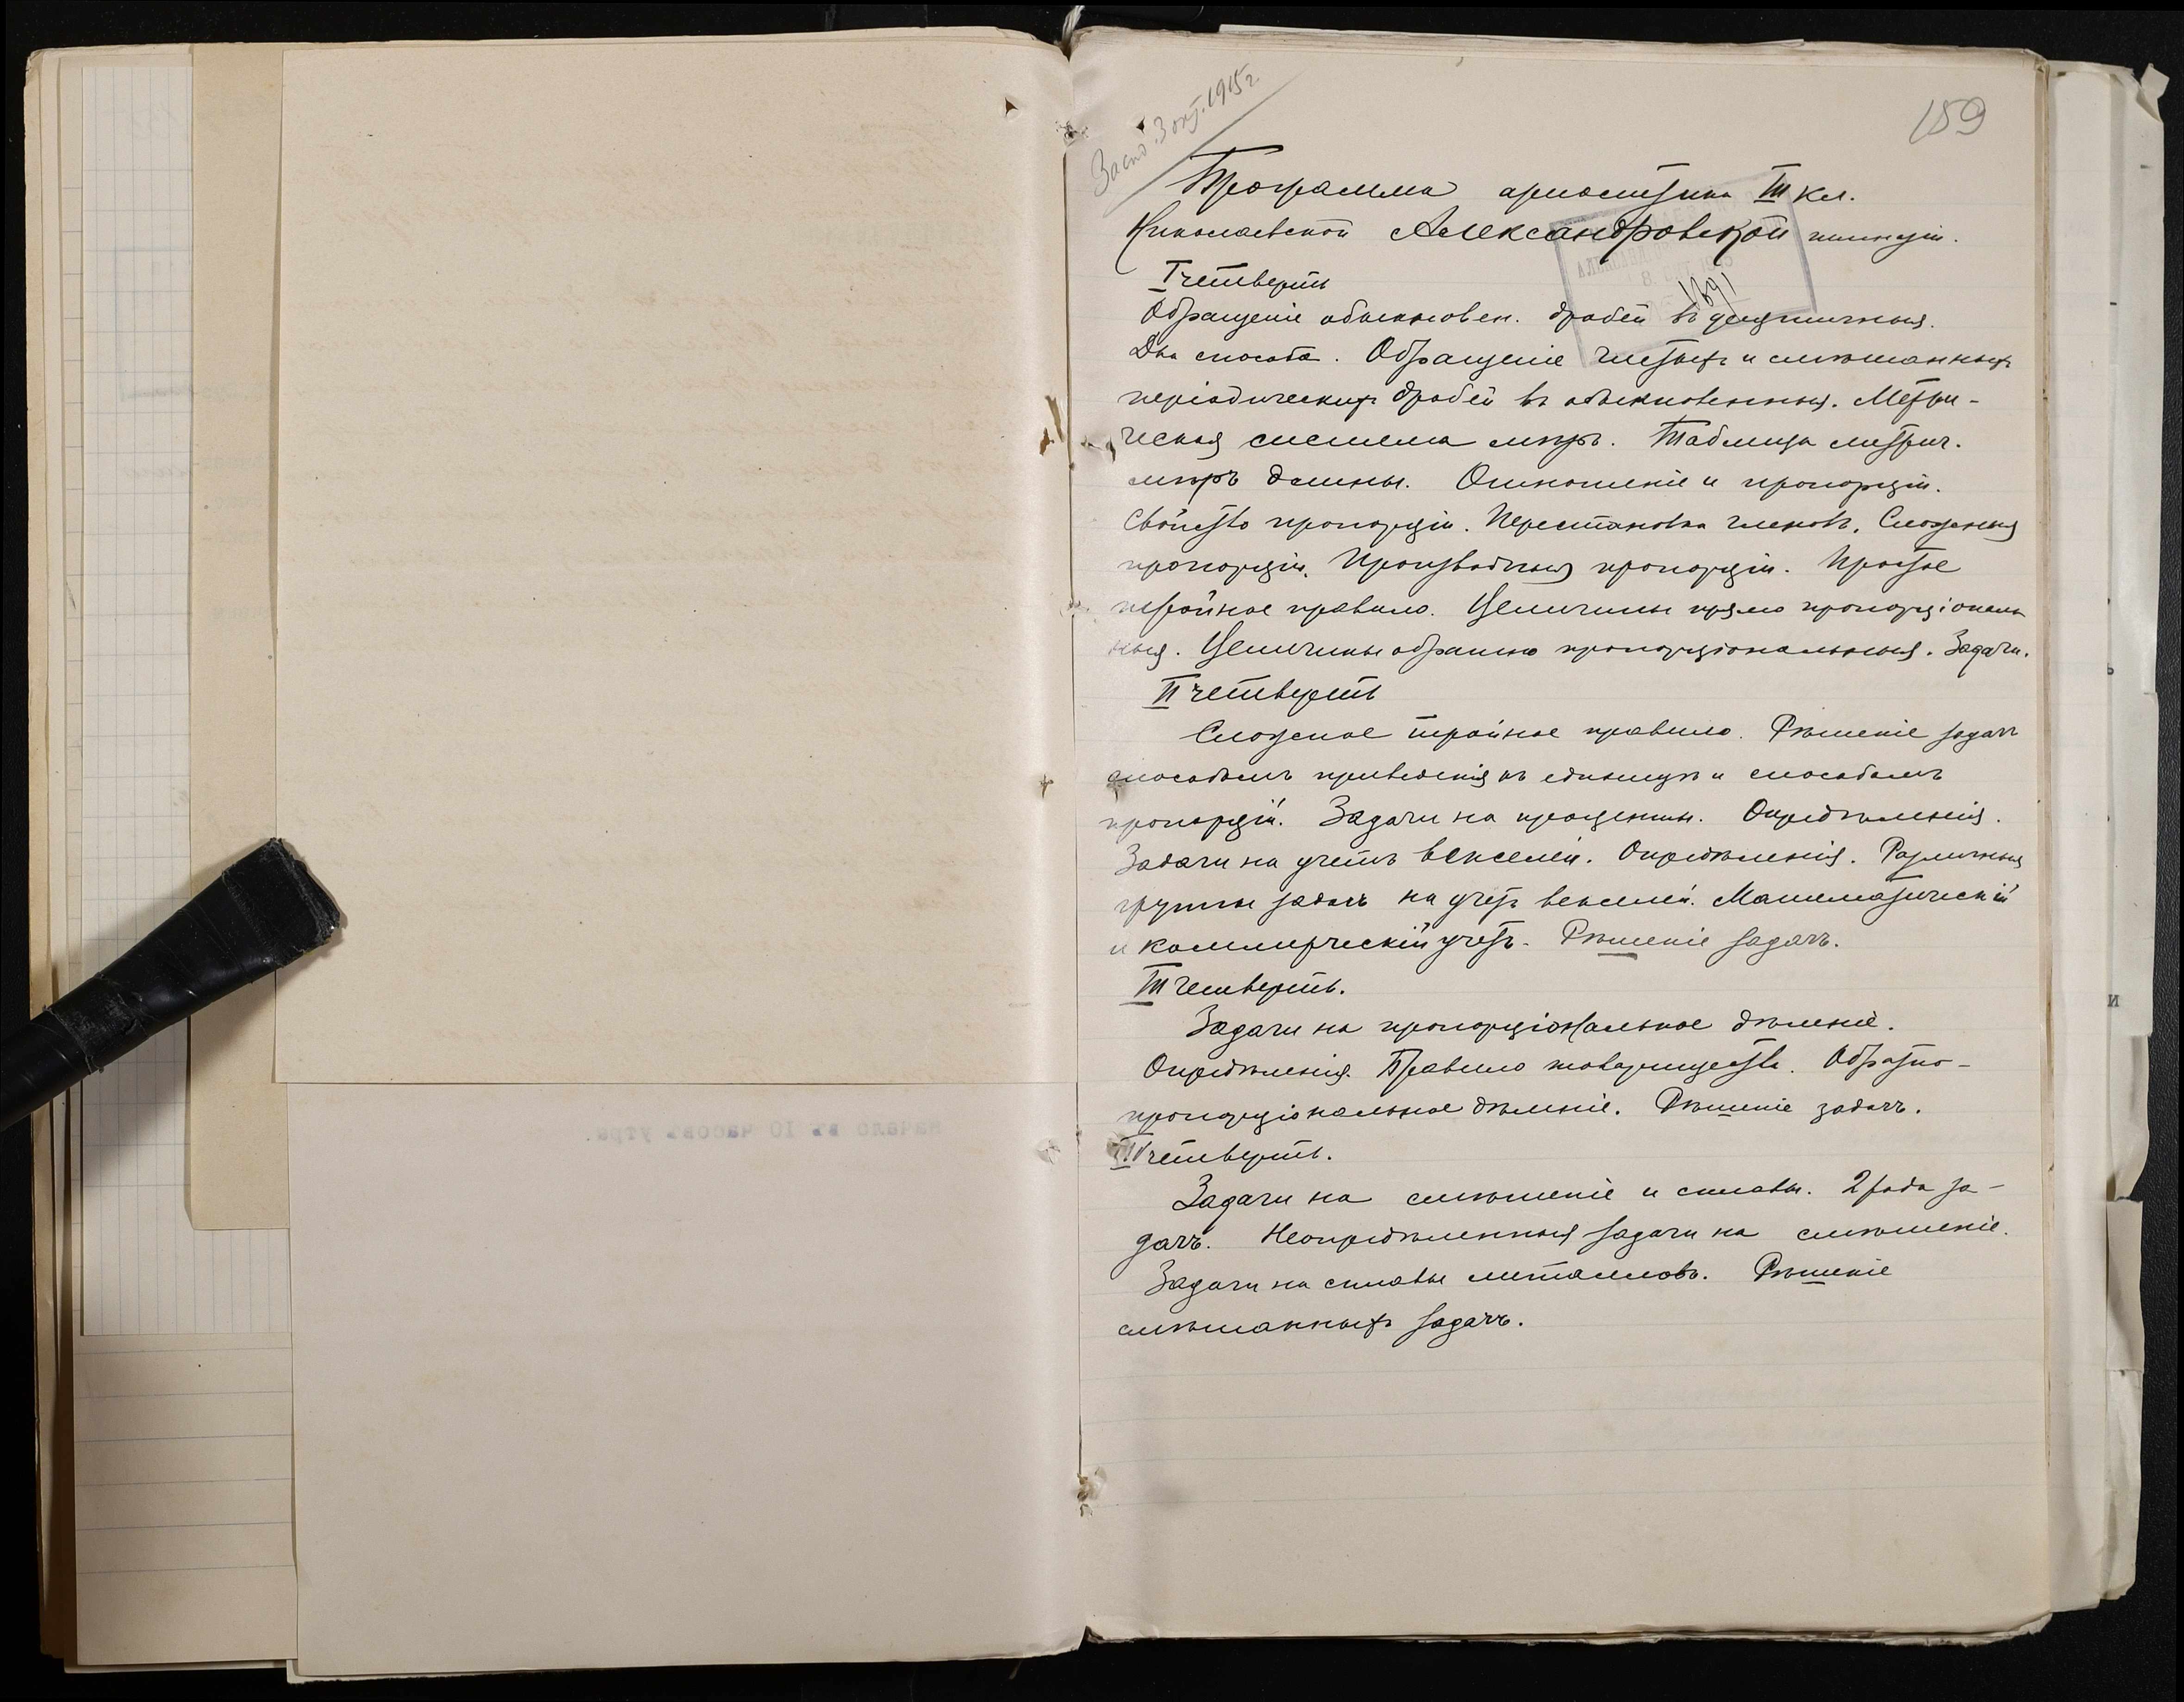 Засѣд. 3 окт. 1915 г.
159
Программа ариѳметики III кл.
Николаевской Александровской гимназіи.
1891
I четверть
Обращеніе обыкновен. дробей въ десятичныя.
Два способа. Обращеніе чистыхъ и смѣшанныхъ
періодическихъ дробей въ обыкновенныя. Метри-
ческая система мѣръ. Таблица метрич.
мѣръ длины. Отношеніе и пропорціи.
Свойство пропорціи. Перестановка членовъ. Сложныя
пропорціи. Производныя пропорціи. Простое
тройное правило. Величины прямо пропорціональ
ныя. Величины обратно пропорціональныя. Задачи.
II четверть
Сложное тройное правило. Рѣшеніе задачъ
способомъ приведенія къ единицѣ и способомъ
пропорцій. Задачи на проценты. Опредѣленія.
Задачи на учетъ векселей. Опредѣленія. Различныя
группы задачъ на учетъ векселей. Математическій
и коммерческій учетъ. Рѣшеніе задачъ.
III четверть.
Задачи на пропорціональное дѣленіе.
Опредѣленія. Правило товарищества. Обратно-
пропорціональное дѣленіе. Рѣшеніе задачъ.
IV четверть.
Задачи на смѣшеніе и сплавы. 2 рода за-
дачъ. Неопредѣленныя задачи на смѣшеніе.
Задачи на сплавы металловъ. Рѣшеніе
смѣшанныхъ задачъ.
начало въ 10 часовъ утра.